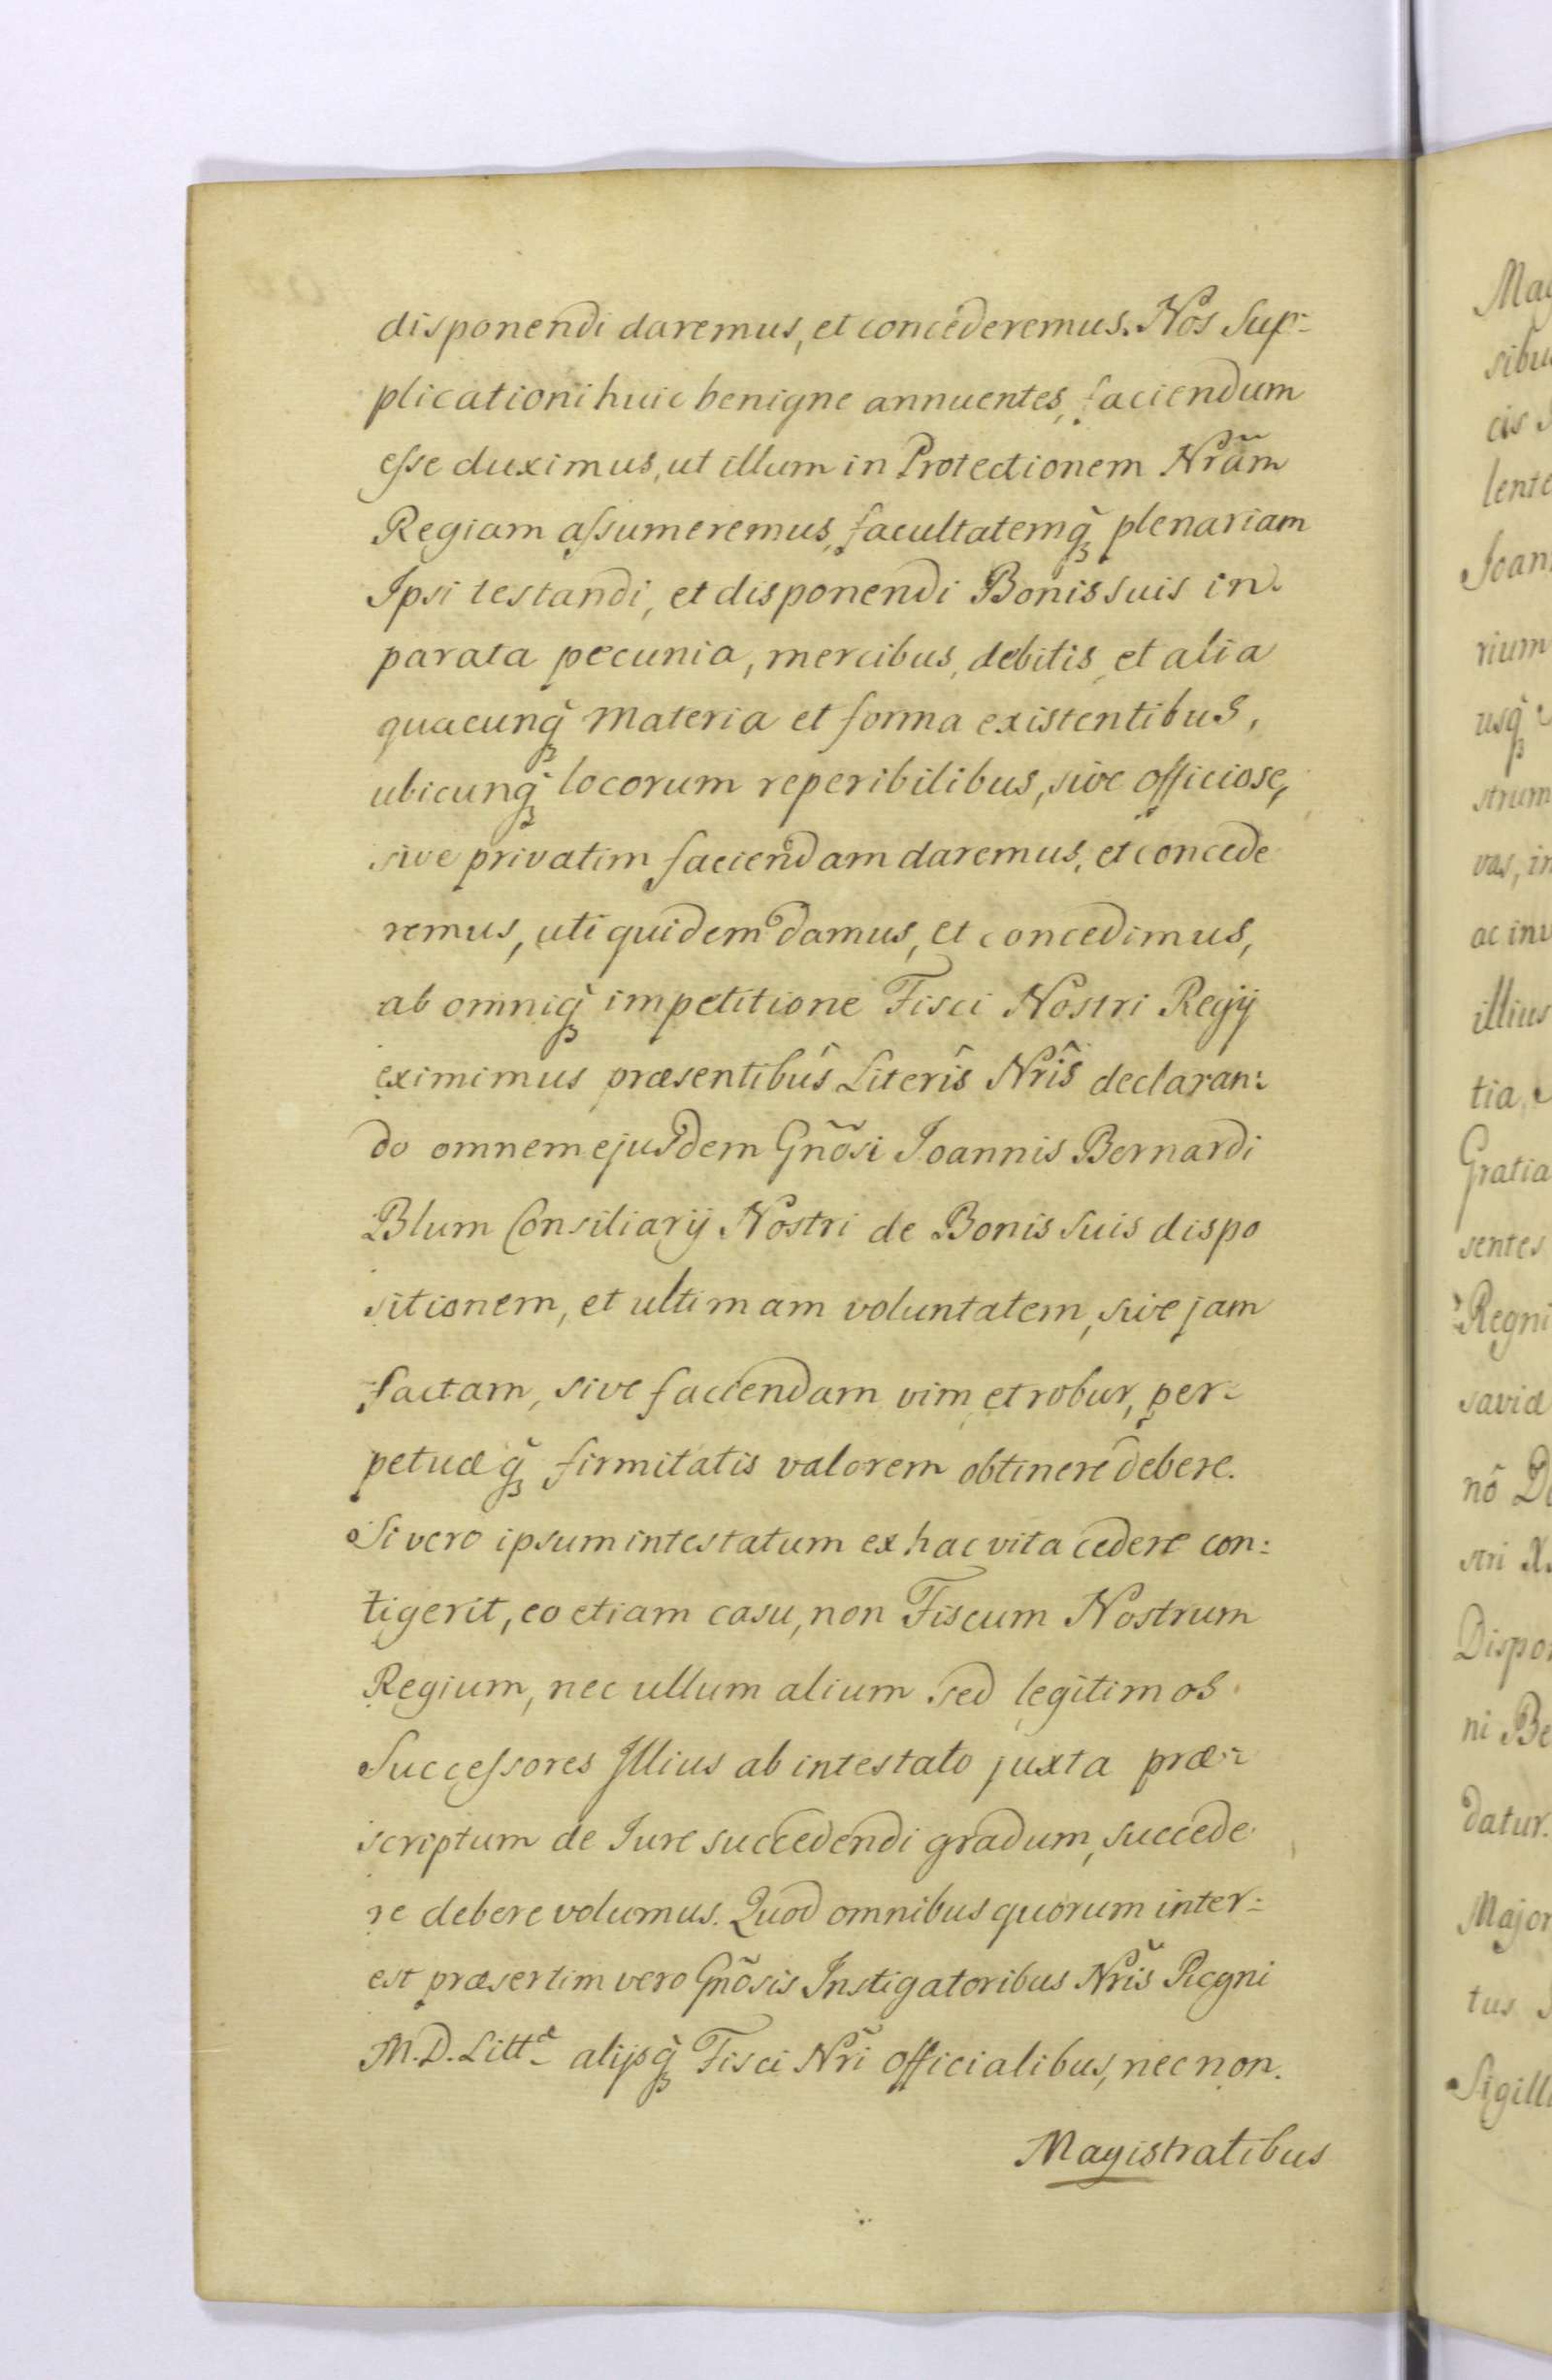 disponendi daremus, et concederemus. Nos Sup:
plicationi huic benigne annuentes, faciendum
esse duximus, ut illum in Protectionem Nrãm
Regiam assumeremus, facultatemq̃ plenariam
Ipsi testandi, et disponendi Bonis suis in
parata pecunia, mercibus, debitis, et alia
quacunq̃ materia et forma existentibus,
ubicunq̃ locorum reperibilibus, sive officiose,
sive privatim faciendam daremus, et concede
remus, uti quidem damus, et concedimus,
ab omniq̃ impetitione Fisci Nostri Regÿ
eximimus præsentibûs Literîs Nrîs declaran:
do omnem ejusdem Gnõsi Joannis Bernardi
Blum Consiliarÿ Nostri de Bonis suis dispo
sitionem, et ultimam voluntatem, sive jam
factam, sive faciendam vim et robur, per:
petuæq̃ firmitatis valorem obtinere debere.
Si vero ipsum intestatum ex hac vita cedere con:
tigerit, eo etiam casu, non Fiscum Nostrum
Regium, nec ullum alium sed legitimos
Successores Illius ab intestato juxta præ:
scriptum de Iure succedendi gradum, succede
re debere volumus. Quod omnibus quorum inter:
est præsertim vero Gnõsis Instigatoribus Nrĩs Regni
M.D.Littæ alijsq̃ Fisci Nrĩ officialibus, nec non.
Magistratibus
Mag
sibu
cis
lente
Joan
rium
usq̃
strum
vas, in
ac inv
illius
tia
Gratia
sentes
Regni
saviæ
nô D
stri X
Dispo
ni Be
datur.
Major
tus
Sigill